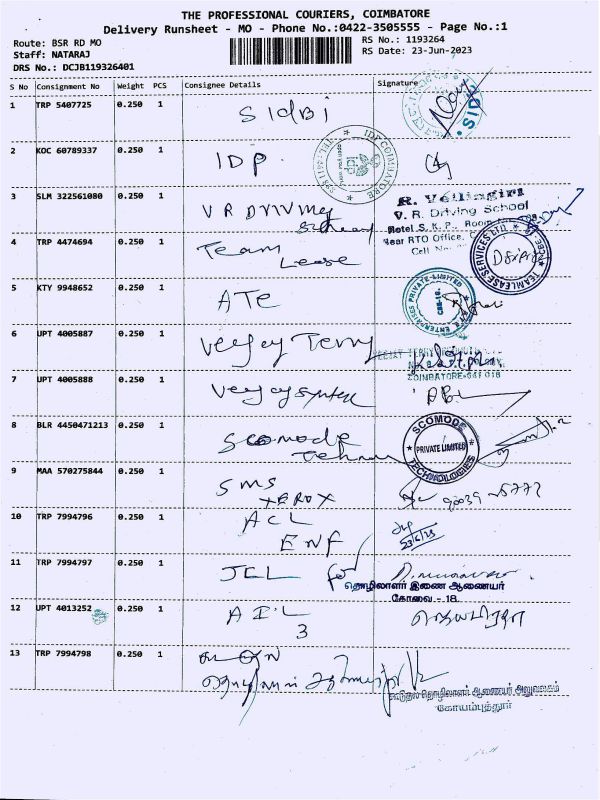 THE PROFESSIONAL COURIERS, COIMBATORE
Delivery Runsheet - MO - Phone No.:0422-3505555 - Page No.:1
Route: BSR RD MO
RS No.: 1193264
Staff: NATARAJ
RS Date: 23-Jun-2023
DRS No.: DCJB119326401
S No Consignment No Weight PCS Consignee Details Signature
1 TRP 5407725 0.250 1 SIdBi
2 KOC 60789337 0.250 1 IDP
IDP COIMBATORE
3 SLM 322561080 0.250 1 V R
R. Vellingiri
V. R. Driving School
Hotel S. K. P., Room
Near RTO Office,
Cell No:
4 TRP 4474694 0.250 1 Team
Lease
TEAMLEASE SERVICES LTD.
5 KTY 9948652 0.250 1 ATE
ENTERPRISES PRIVATE LIMITED
6 UPT 4005887 0.250 1 Veejay Terry
VEEJAY TERRY
COIMBATORE-641 018
7 UPT 4005888 0.250 1 Veejay
8 BLR 4450471213 0.250 1 Scomode
SCOMODE
PRIVATE LIMITED
TECHNOLOGIES
9 MAA 570275844 0.250 1 SMS
XEROX
10 TRP 7994796 0.250 1 ACL
ENF
23/6/23
11 TRP 7994797 0.250 1 JCL
தொழிலாளர் இணை ஆணையர்
கோவை - 18.
12 UPT 4013252 0.250 1 AIL
3
13 TRP 7994798 0.250 1
கூடுதல் தொழிலாளர் ஆணையர் அலுவலகம்
கோயம்புத்தூர்